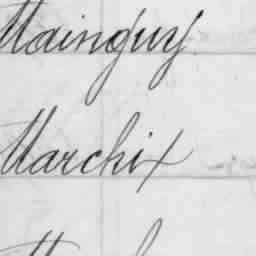 Mainguy
Marchix